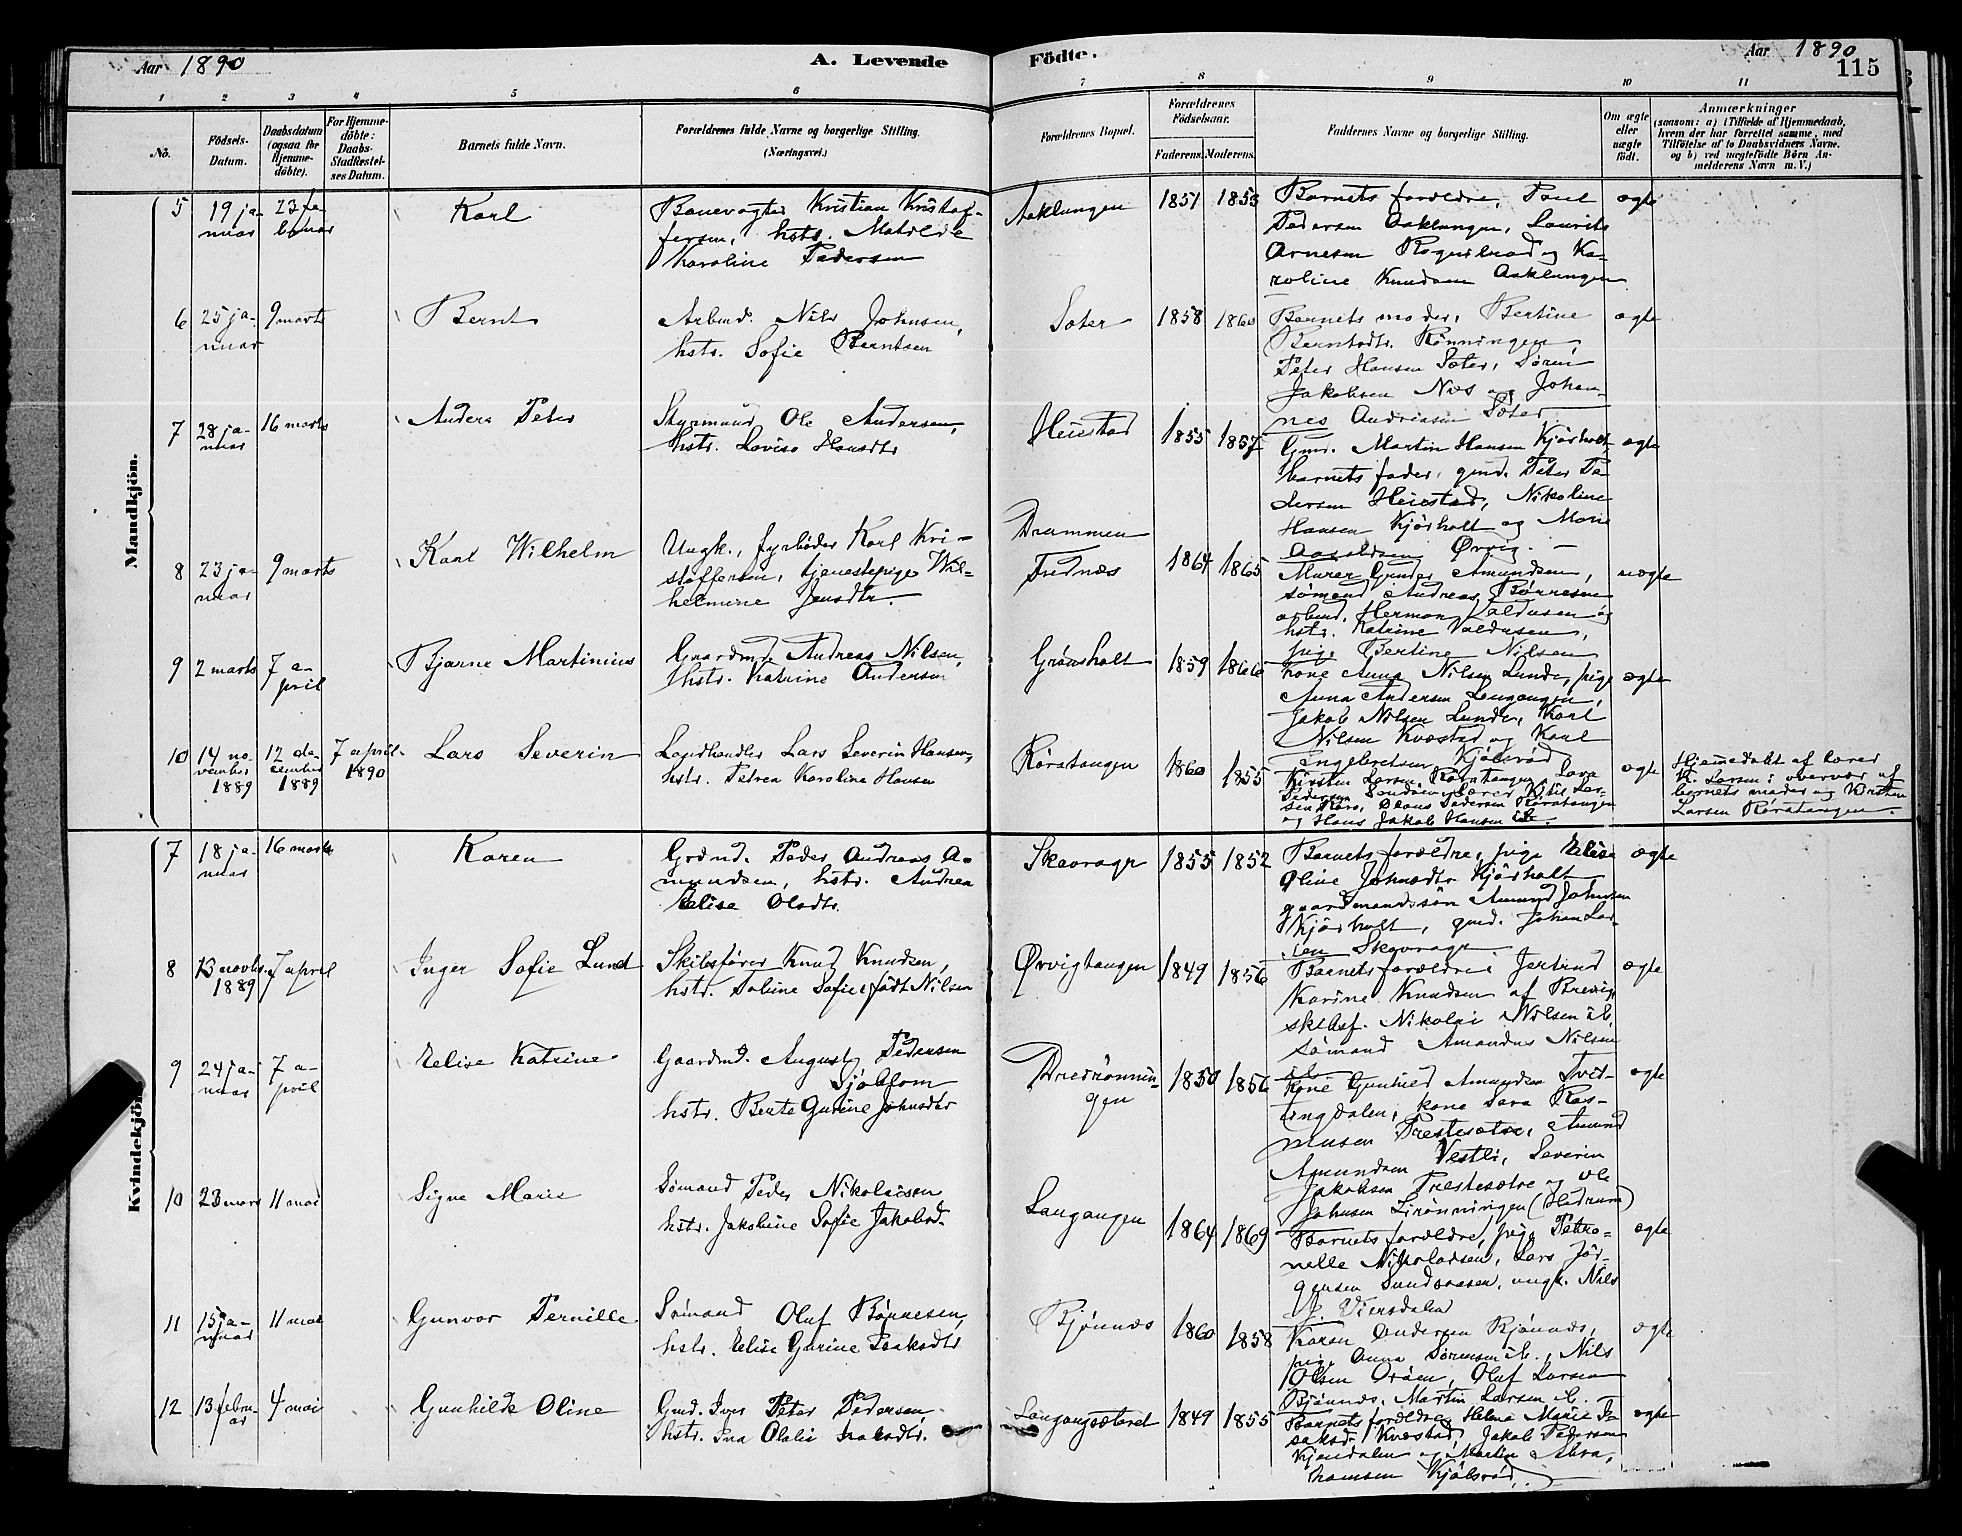 Aar 1890
A. Levende Födte.
Aar 1890
115
1 2 3 4 5 6 7 8 9 10 11
No.
Födsels-
Datum.
Daabsdatum
(ogsaa för
Hjemme-
döbte).
For Hjemme-
döbte:
Daabs-
Stadfæstel-
ses Datum.
Barnets fulde Navn.
Forældrenes fulde Navne og borgerlige Stilling.
(Næringsvei.)
Forældrenes Bopæl.
Forældrenes
Födselsaar.
Faderens. Moderens.
Faddernes Navne og borgerlige Stilling.
Om ægte
eller
uægte
födt.
Anmærkninger
(saasom: a) i Tilfælde af Hjemmedaab,
hvem der har forrettet samme, med
Tilföielse af to Daabsvidners Navne.
og b) ved uægtefödte Börn An-
melderens Navn m. V.)
Mandkjön.
5
19 ja-
nuar
23 fe-
bruar
Karl
Banevogter Kristian Kristof-
fersen, hstr. Matilde
Karoline Pedersen
Aaklungen
1851
1855
Barnets forældre, Paul
Pedersen Aaklungen, Laurits
Arnesen Rognsbrad og Ka-
roline Knudsen Aaklungen
ægte
6
25 ja-
nuar
9 marts
Bernt
Arbmd. Nils Johnsen,
hstr. Sofie Berntsen
Sæter
1858
1860
Barnets moder, Bertine
Berntsdtr. Rønningen,
Peter Hansen Sæter, Søren
Jakobsen Næs og Johan-
nes Andreasen Sæter
ægte
7
28 ja-
nuar
16 marts
Anders Peter
Styrmand Ole Andersen,
hstr. Lovise Hansdtr.
Heistad
1855
1857
Gmd. Martin Hansen Kjørholt,
barnets fader, gmd. Peter Pe-
dersen Heistad, Nikoline
Hansen Kjørholt og Marie
Aasoldsen Ørvig.
ægte
8
23 ja-
nuar
9 marts
Karl Wilhelm
Ungk., fyrbøder Karl Kri-
stoffersen, tjenestepige Wil-
helmine Jensdtr.
Drammen
Frednæs
1864
1865
Murer Gunder Amundsen,
sømand Andreas Børresen
arbmd. Herman Valdusen og
hstr. Katrine Valdusen,
pige Bertine Nilsen
uægte
9
2 marts
7 a-
pril
Bjarne Martinius
Gaardmd. Andreas Nilsen,
hstr. Katrine Andersen
Grønsholt
1859
1866
Kone Anna Nilsen Lunde, pige
Anna Andersen Langangen,
Jakob Nilsen Lunde, Karl
Nilsen Kvæstad og Karl
Engelbretsen Kjølsrød
ægte
10
14 no-
vember
1889
12 de-
cember
1889
7 april
1890
Lars Severin
Landhandler Lars Severin Hansen,
hstr. Petrea Karoline Hansen
Røratangen
1860
1855
Kirsten Larsen Røratangen, Lava
Pedersen Sandøen, Lærer K. Lar-
sen Røra, Claus Pedersen Røratangen
og Hans Jakob Hansen ib.
ægte
Hjemmedøbt af lærer
K. Larsen i overvær af
barnets moder og Kirsten
Larsen Røratangen.
Kvindekjön.
7
18 ja-
nuar
16 marts
Karen
Grdmd. Peder Andreas A-
mundsen, hstr. Andrea
Elise Olsdtr.
Skavrager
1855
1852
Barnets forældre, pige Elise
Oline Johnsdtr. Kjørholt
gaardmandssøn Amund Johnsen
Kjørholt, gmd. Johan Lar-
sen Skavrager
ægte
8
13 novbr.
1889
7 april
Inger Sofie Lund
Skibsfører Knud Knudsen,
hstr. Tomine Sofie født Nilsen
Ørvigtangen
1849
1856
Barnets forældre, Jertrud
Karine Knudsen af Brevig,
skibsf. Nikolai Nilsen ib.,
sømand Amandus Nilsen
ib.
ægte
9
24 ja-
nuar
7 a-
pril
Elise Katrine
Gaardmd. August Pedersen
Sjøblom
hstr. Berte Gurine Johnsdtr
Drerønnin-
gen
1850
1856
Kone Gunhild Amundsen Tvit-
tingdalen, kone Sara Ras-
musen Prestesætre, Amund
Amundsen Vestli, Severin
Jakobsen Prestesætre og Ole
Johnsen Lirønningen (Hedrum)
ægte
10
23 mars
11 mai
Signe Marie
Sømand Peder Nikolaisen
hstr. Jakobine Sofie Jakobsd.
Langangen
1864
1869
Barnets forældre, pige Petro-
nelle Nikolaisen, Lars Jør-
gensen Sundsaasen, ungk. Nils
J. Viersdalen
ægte
11
15 ja-
nuar
11 mai
Gunvor Pernille
Sømand Oluf Børresen,
hstr. Elise Gurine Isaksdtr
Bjønnæs
1860
1858
Karen Andersen Bjønnæs,
pige Anna Sørensen ib., Nils
Olsen Orøen, Oluf Larsen
Bjønnæs, Martin Larsen ib.
ægte
12
13 febru-
ar
4 mai
Gunhilde Oline
Gmd. Iver Peter Pedersen,
hstr. Ina Olalie Isaksdtr.
Langangsæteret
1849
1855
Barnets forældre, Helene Marie I-
saksd. Kvæstad, Jakob Pedersen
Kjendalen og Martin Abra-
hamsen Kjølsrød
ægte